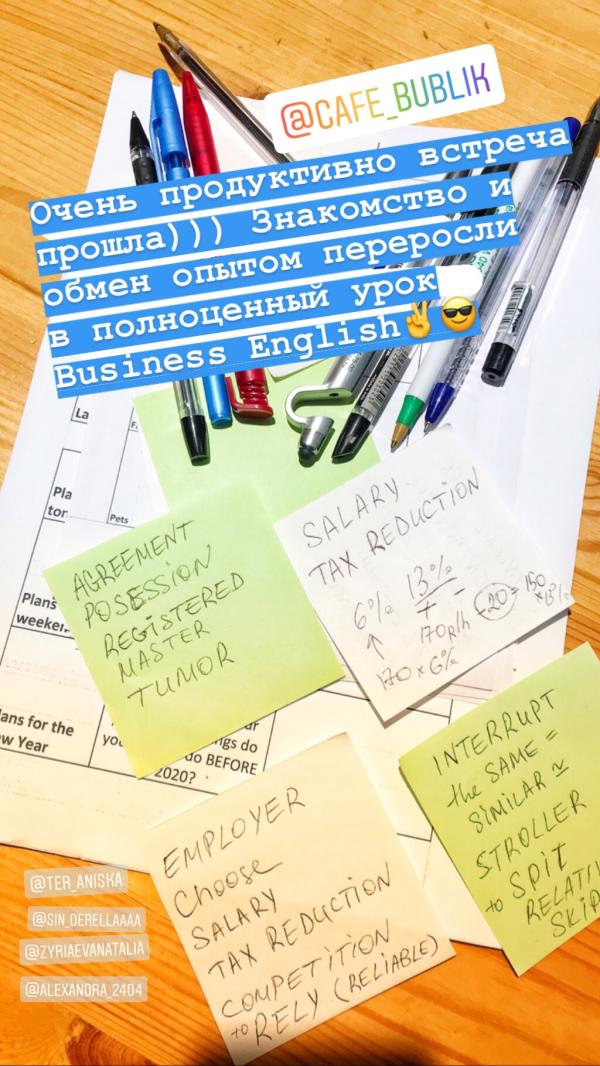 @CAFE_BUBLIK
Очень продуктивно встреча
прошла))) Знакомство и
обмен опытом переросли
в полноценный урок
Business English✌😎
La
Pla
tor
Pets
SALARY
TAX REDUCTION
6% 13%
170R/h -20= 150
170 x 6%
AGREEMENT
POSESSION
REGISTERED
MASTER
TUMOR
Plans
weeken
lans for the
w Year
you
ngs do
do BEFORE
2020?
INTERRUPT
the SAME =
SIMILAR ≃
STROLLER
to SPIT
RELATI
SKIP
EMPLOYER
Choose
SALARY
TAX REDUCTION
COMPETITION
to RELY (RELIABLE)
@TER_ANISKA
@SIN_DERELLAAAA
@ZYRIAEVANATALIA
@ALEXANDRA_2404